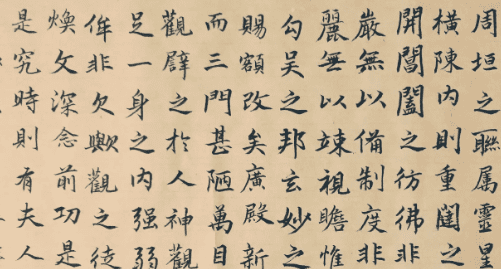 周垣之聯属靈星
橫陳内則重闥之
開閶闔之彷彿非
嚴無以備制度非
麗無以竦視瞻惟
勾吳之邦玄妙之
賜額改矣廣殿新
而三門甚陋萬目
觀譬之於人神觀
足一身之内强弱
侔非欠歟觀之徒
煥文深念前功是
是究時則有夫人